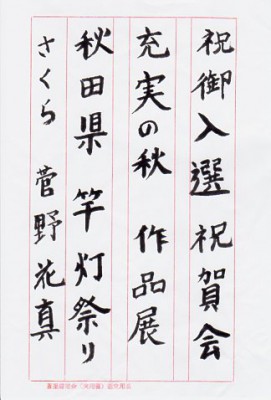 祝御入選 祝賀会
充実の秋 作品展
秋田県 竿灯祭り
さくら 菅野花真